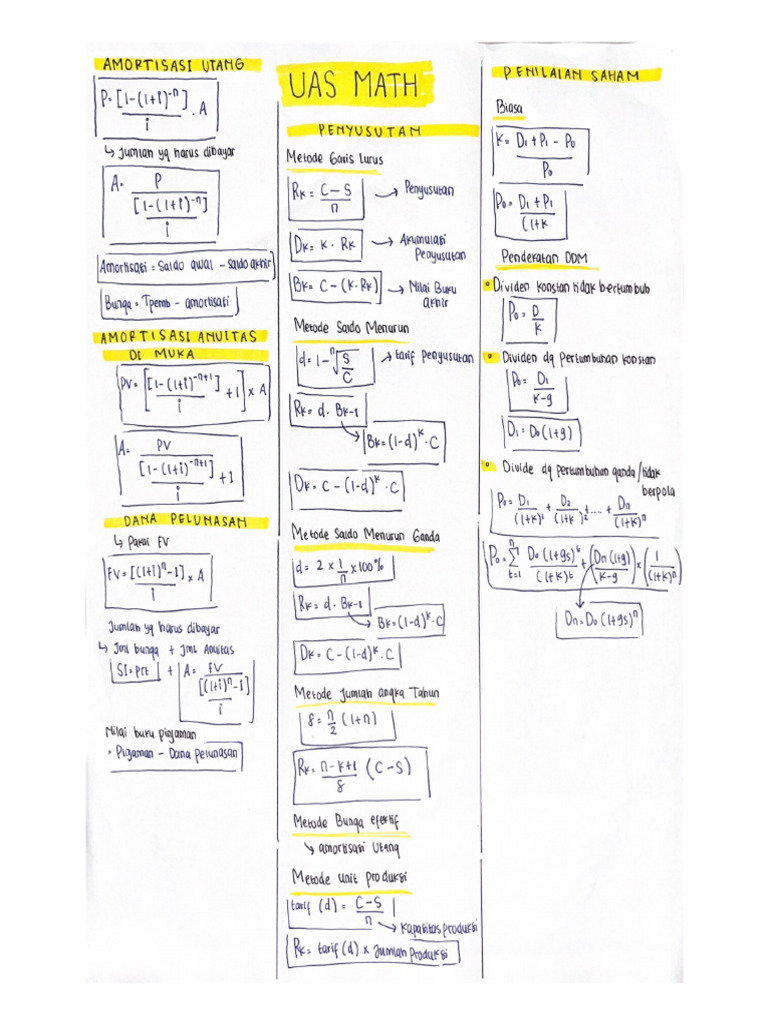 AMORTISASI UTANG
P = [1-(1+i)^-n] / i . A
↳ Jumlah yg harus dibayar
A = P / ([1-(1+i)^-n] / i)
Amortisasi = Saldo awal - saldo akhir
Bunga = Tpemb - amortisasi
AMORTISASI ANUITAS
DI MUKA
PV = [[1-(1+i)^-n+1] / i + 1] x A
A = PV / ([1-(1+i)^-n+1] / i + 1)
DANA PELUNASAN
↳ Pakai FV
FV = [(1+i)^n - 1] / i x A
Jumlah yg harus dibayar
↳ Jml bunga + Jml Anuitas
SI = Prt + A = FV / ([(1+i)^n - 1] / i)
Nilai buku pinjaman
• Pinjaman - Dana pelunasan
UAS MATH
PENYUSUTAN
Metode Garis Lurus
Rk = C-S / n → Penyusutan
Dk = k . Rk → Akumulasi
Penyusutan
Bk = C - (k . Rk) → Nilai Buku
akhir
Metode Saldo Menurun
d = 1 - n√(S/C) → tarif penyusutan
Rk = d . Bk-1
→ Bk = (1-d)^k . C
Dk = C - (1-d)^k . C
Metode Saldo Menurun Ganda
d = 2 x 1/n x 100%
Rk = d . Bk-1
→ Bk = (1-d)^k . C
Dk = C - (1-d)^k . C
Metode Jumlah angka Tahun
8 = n/2 (1+n)
Rk = n-k+1 / 8 (C-S)
Metode Bunga efektif
↳ amortisasi Utang
Metode unit produksi
tarif (d) = C-S / n
→ Kapasitas produksi
Rk = tarif (d) x Jumlah Produksi
PENILAIAN SAHAM
Biasa
K = D1 + P1 - P0 / P0
P0 = D1 + P1 / (1+k
Pendekatan DDM
• Dividen konstan tidak bertumbuh
P0 = D / k
• Dividen dg Pertumbuhan konstan
P0 = D1 / k-g
D1 = D0 (1+g)
• Divide dg pertumbuhan ganda/tidak
berpola
P0 = D1 / (1+k)^1 + D2 / (1+k)^2 + .... + Dn / (1+k)^n
P0 = Σ t=1 n D0 (1+gs)^t / (1+k)^t + (Dn (1+g) / k-g) x (1 / (1+k)^n)
Dn = D0 (1+gs)^n